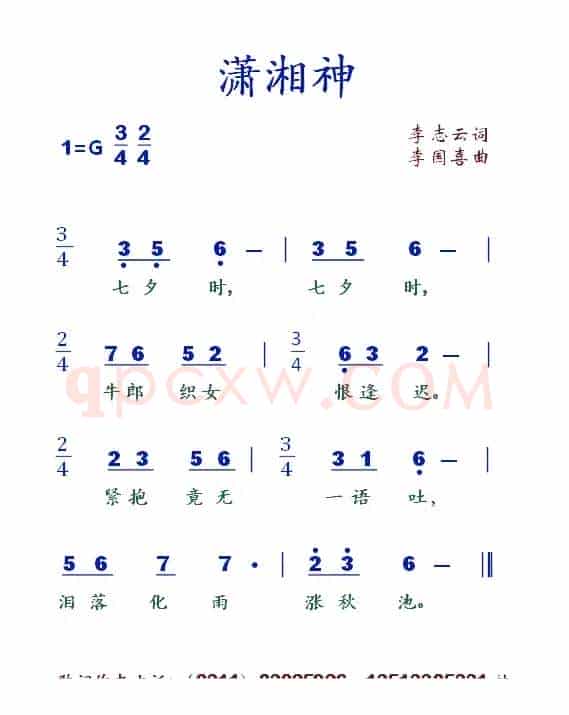 潇湘神
1=G 3/4 2/4
李志云词
李国喜曲
3/4 3 5 6 — | 3 5 6 — |
七夕 时， 七夕 时，
2/4 7 6 5 2 | 3/4 6 3 2 — |
牛郎 织女 恨逢 迟。
qpcxw.COM
2/4 2 3 5 6 | 3/4 3 1 6 — |
紧抱 竟无 一语 吐，
5 6 7 7 · | 2 3 6 — ‖
泪落 化 雨 涨秋 池。